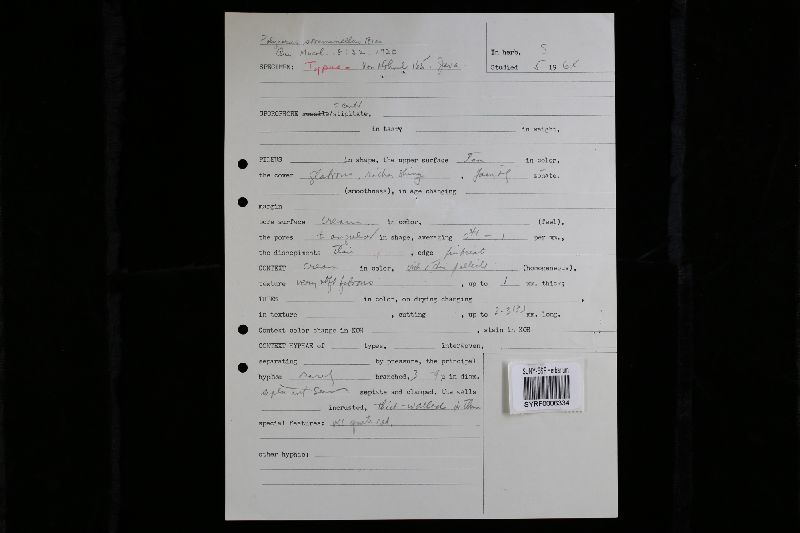 Polyporus straminellus Bres
Ann Mycol. 18:32 1920
SPECIMEN: Typus - Java.
In herb. S
Studied 5 1966
SPOROPHORE sessile/stipitate,
in tasty in weight,
PILEUS in shape, the upper surface Tan in color,
the cover glabrous, rather shiny, faintly zonate.
(smoothness), in age changing
margin
pore surface cream in color, (feel),
the pores ± angular in shape, averaging 1 per mm.,
the dissepiments thin, edge fimbriate
CONTEXT cream in color, (homogeneous),
texture very stiff fibrous, up to 1 mm. thick;
TUBES in color, on drying changing,
in texture, cutting, up to 2-3(?) mm. long.
Context color change in KOH, stain in KOH
CONTEXT HYPHAE of types, interwoven,
separating by pressure, the principal
hyphae rarely branched, 3 µ in diam,
septate and clamped, the walls
incrusted, thick-walled
special features:
other hyphae:
SUNY-ESF Herbarium
SYRF0006334